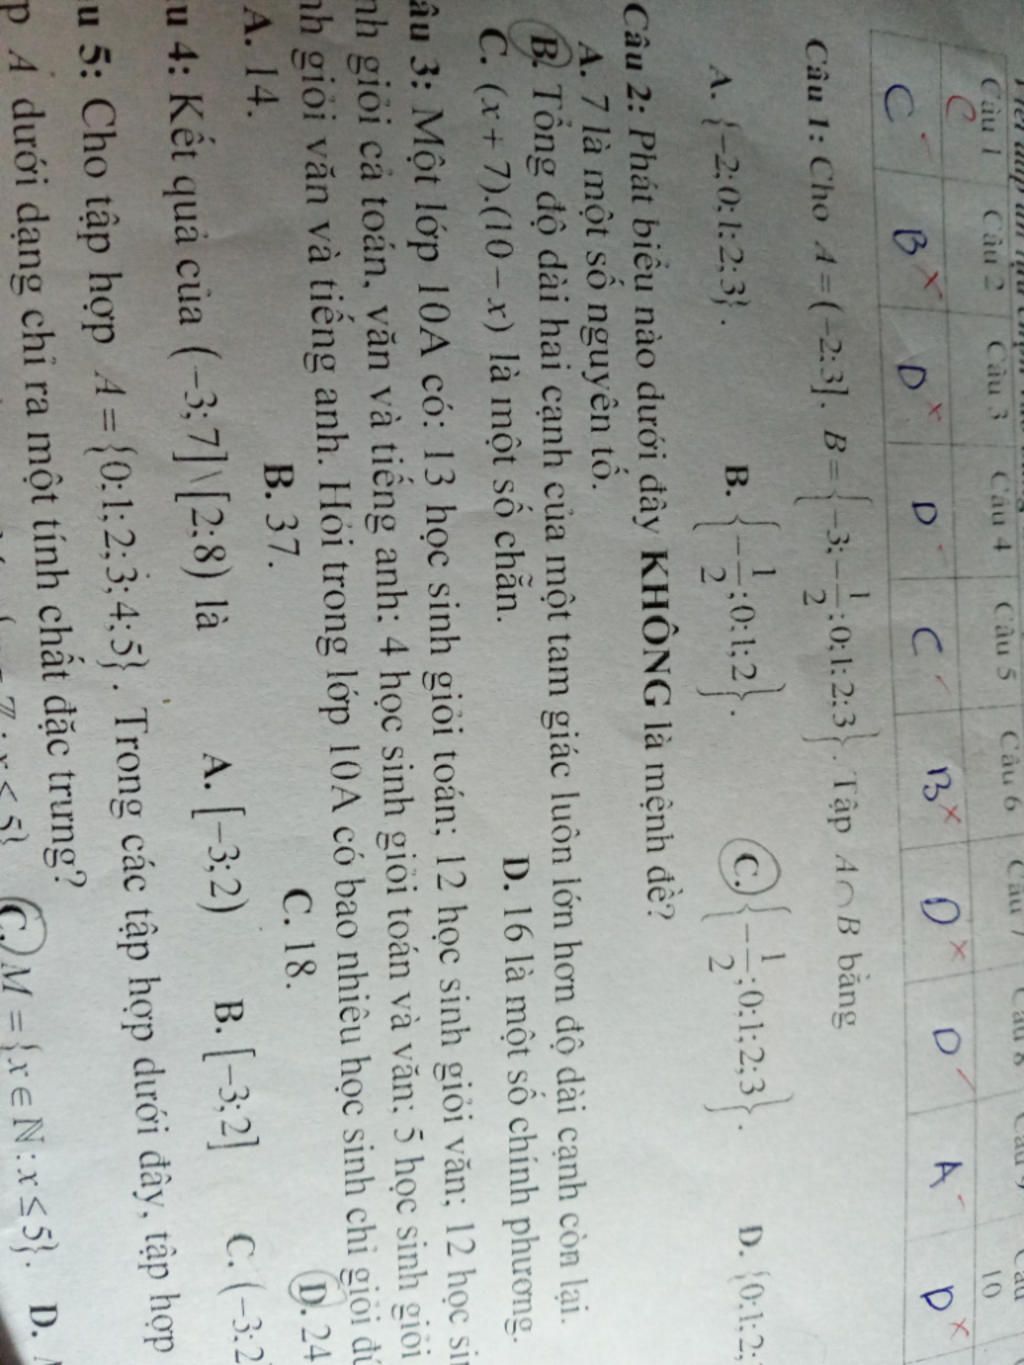 Câu 1 Câu 2 Câu 3 Câu 4 Câu 5 Câu 6 Câu 7 Câu 8 Câu 9 Câu 10
C
C B D D C B D D A D
Câu 1: Cho A = (-2;3], B = {-3; -1/2; 0; 1; 2; 3}. Tập A ∩ B bằng
A. {-2;0;1;2;3}. B. {-1/2;0;1;2}. C. {-1/2;0;1;2;3}. D. {0;1;2;
Câu 2: Phát biểu nào dưới đây KHÔNG là mệnh đề?
A. 7 là một số nguyên tố.
B. Tổng độ dài hai cạnh của một tam giác luôn lớn hơn độ dài cạnh còn lại.
C. (x + 7).(10 − x) là một số chẵn. D. 16 là một số chính phương.
âu 3: Một lớp 10A có: 13 học sinh giỏi toán; 12 học sinh giỏi văn; 12 học si
nh giỏi cả toán, văn và tiếng anh; 4 học sinh giỏi toán và văn; 5 học sinh giỏi
nh giỏi văn và tiếng anh. Hỏi trong lớp 10A có bao nhiêu học sinh chỉ giỏi đú
A. 14. B. 37. C. 18. D. 24
u 4: Kết quả của (-3;7] \ [2;8) là A. [-3;2) B. [-3;2] C. (-3;2
u 5: Cho tập hợp A = {0;1;2;3;4;5}. Trong các tập hợp dưới đây, tập hợp
p A dưới dạng chỉ ra một tính chất đặc trưng?
: x < 5} C. M = {x ∈ ℕ : x ≤ 5}. D.